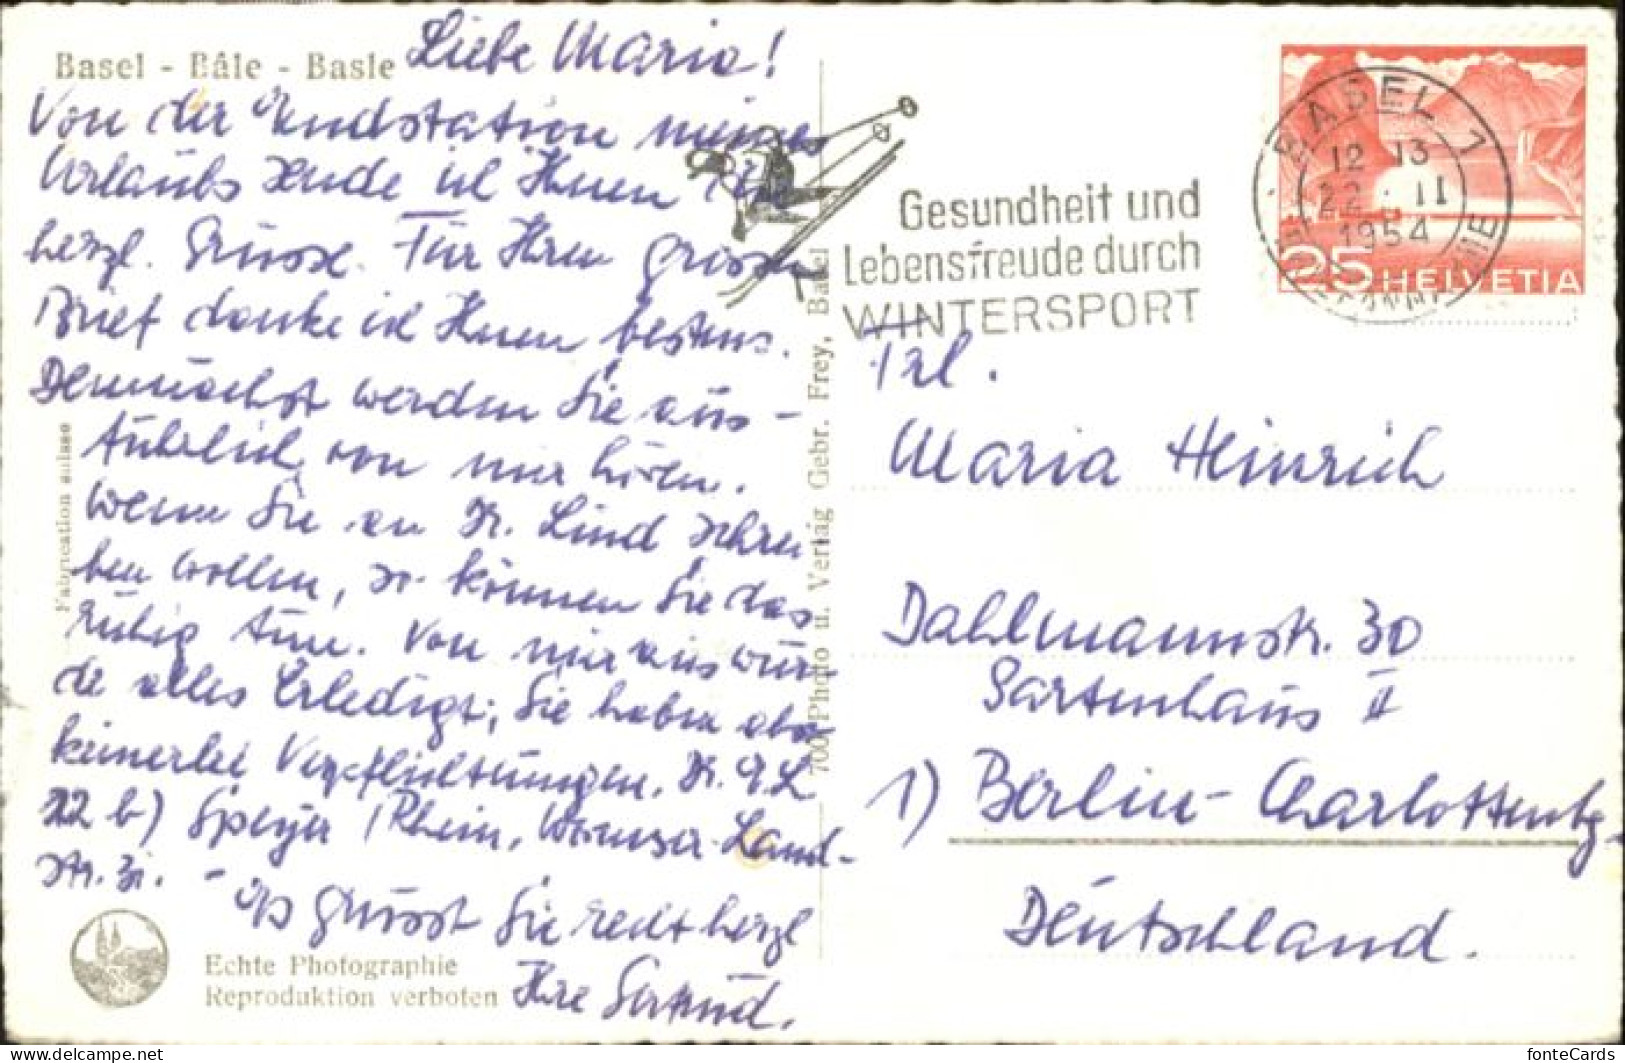 Basel - Bâle - Basle
Liebe Maria!
Von der Endstation meines
Urlaubs sende ich Ihnen
herzl. Grüsse. Für Ihren grossen
Brief danke ich Ihnen bestens.
Demnächst werden Sie aus-
führlich von mir hören.
Wenn Sie an Dr. Lind schrei-
ben wollen, so können Sie das
ruhig tun. Von mir aus wür-
de alles erledigt; Sie haben aber
keinerlei Verpflichtungen. Dr. L
22 b) Speyer / Rhein, Wormser Land-
str. 31. -
Es grüsst Sie recht herzl
Ihre Gertrud.
Echte Photographie
Reproduktion verboten
Fabrication suisse
700 Photo u. Verlag Gebr. Frey, Basel
Gesundheit und
Lebensfreude durch
WINTERSPORT
BASEL 1
12 13
22. II
1954
25 HELVETIA
Frl.
Maria Heinrich
Dahlmannstr. 30
Gartenhaus II
1) Berlin-Charlottenbg
Deutschland.
fonteCards